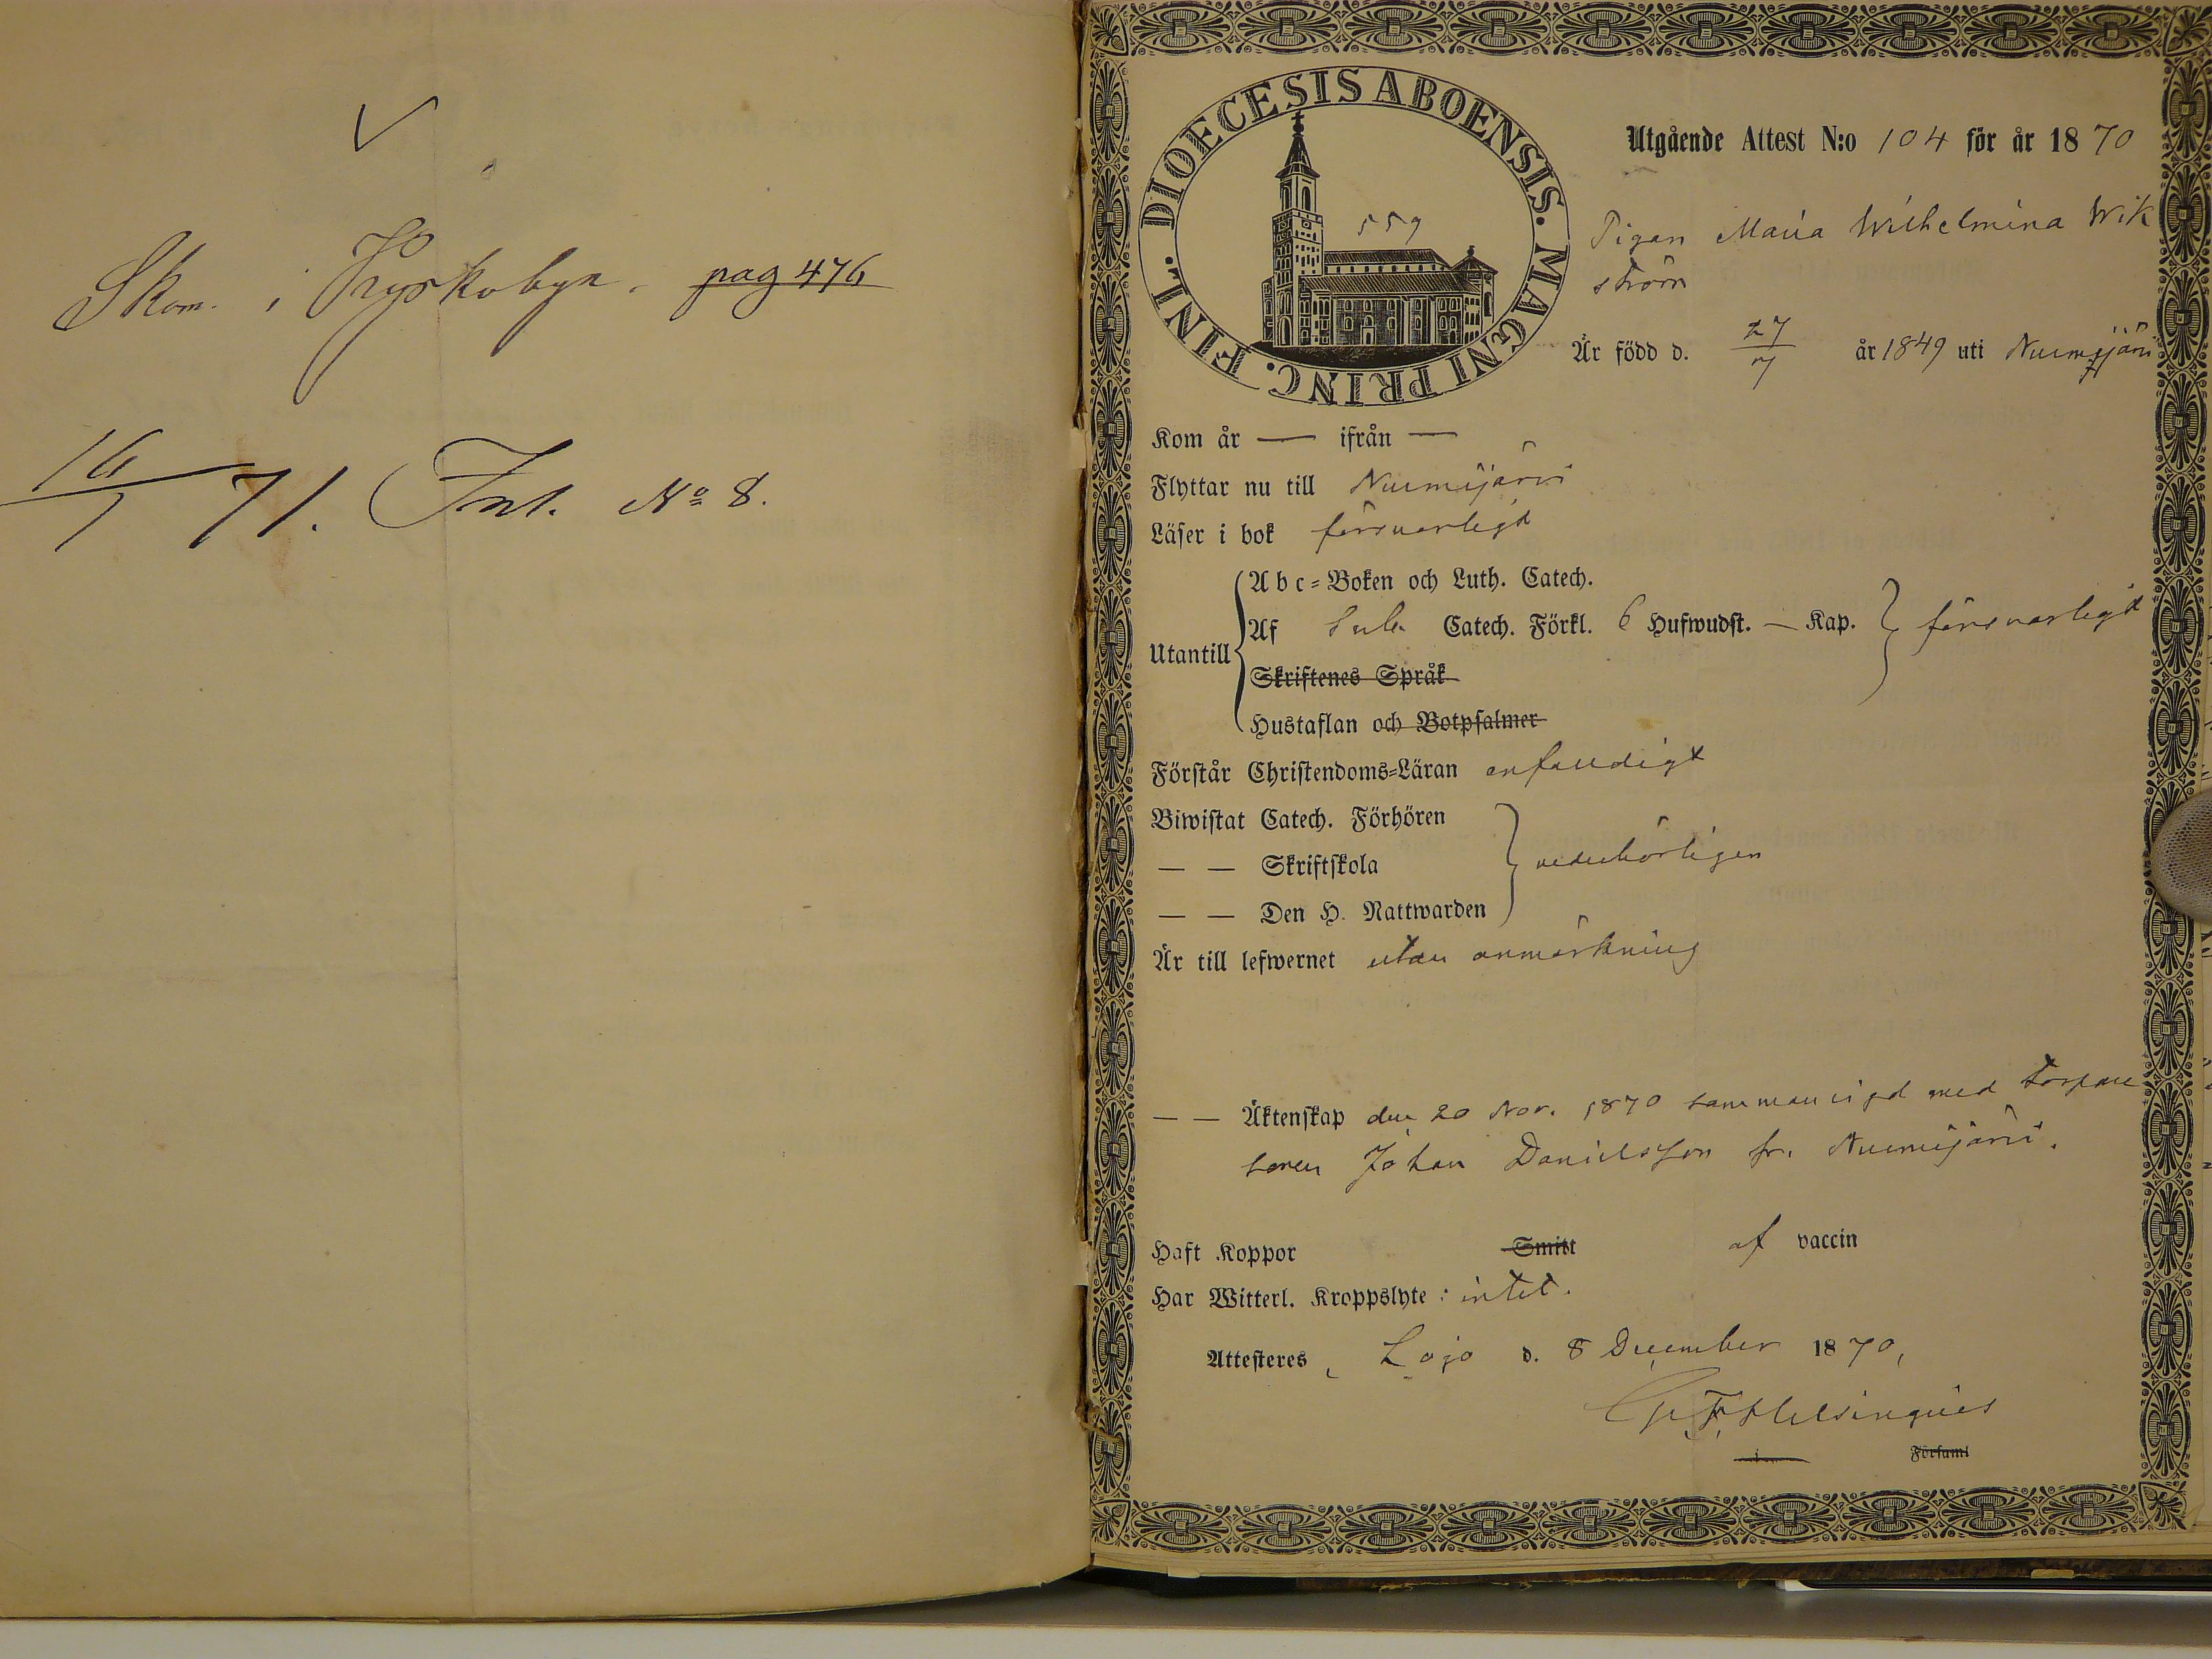 Skom. i Kyrkobyn. pag 476
16/1 71. Int. No 8.
DIOECESIS ABOENSIS. MAGNI PRINC. FINL.
559
Utgående Attest N:o 104 för år 1870
Pigan Maria Wilhelmina Wik
ström
Är född d. 27/7 år 1849 uti Nurmijärvi
Kom år — ifrån —
Flyttar nu till Nurmijärvi
Läser i bok försvarligt
Utantill
Abc-Boken och Luth. Catech.
Af Catech. Förkl. 6 Hufwudst. — Kap. försvarligt
Skriftenes Språk
Hustaflan och Botpsalmer
Förstår Christendoms-Läran enfaldigt
Biwistat Catech. Förhören
— — Skriftskola vederbörligen
— — Den H. Nattwarden
Är till lefwernet utan anmärkning
— — Äktenskap den 20 Nov. 1870 sammanvigd med torpare
sonen Johan Danielsson fr. Nurmijärvi.
Haft Koppor Smitt af vaccin
Har Witterl. Kroppslyte: intet.
Attesteres, Lojo d. 8 December 1870,
Helsingius
i Församl